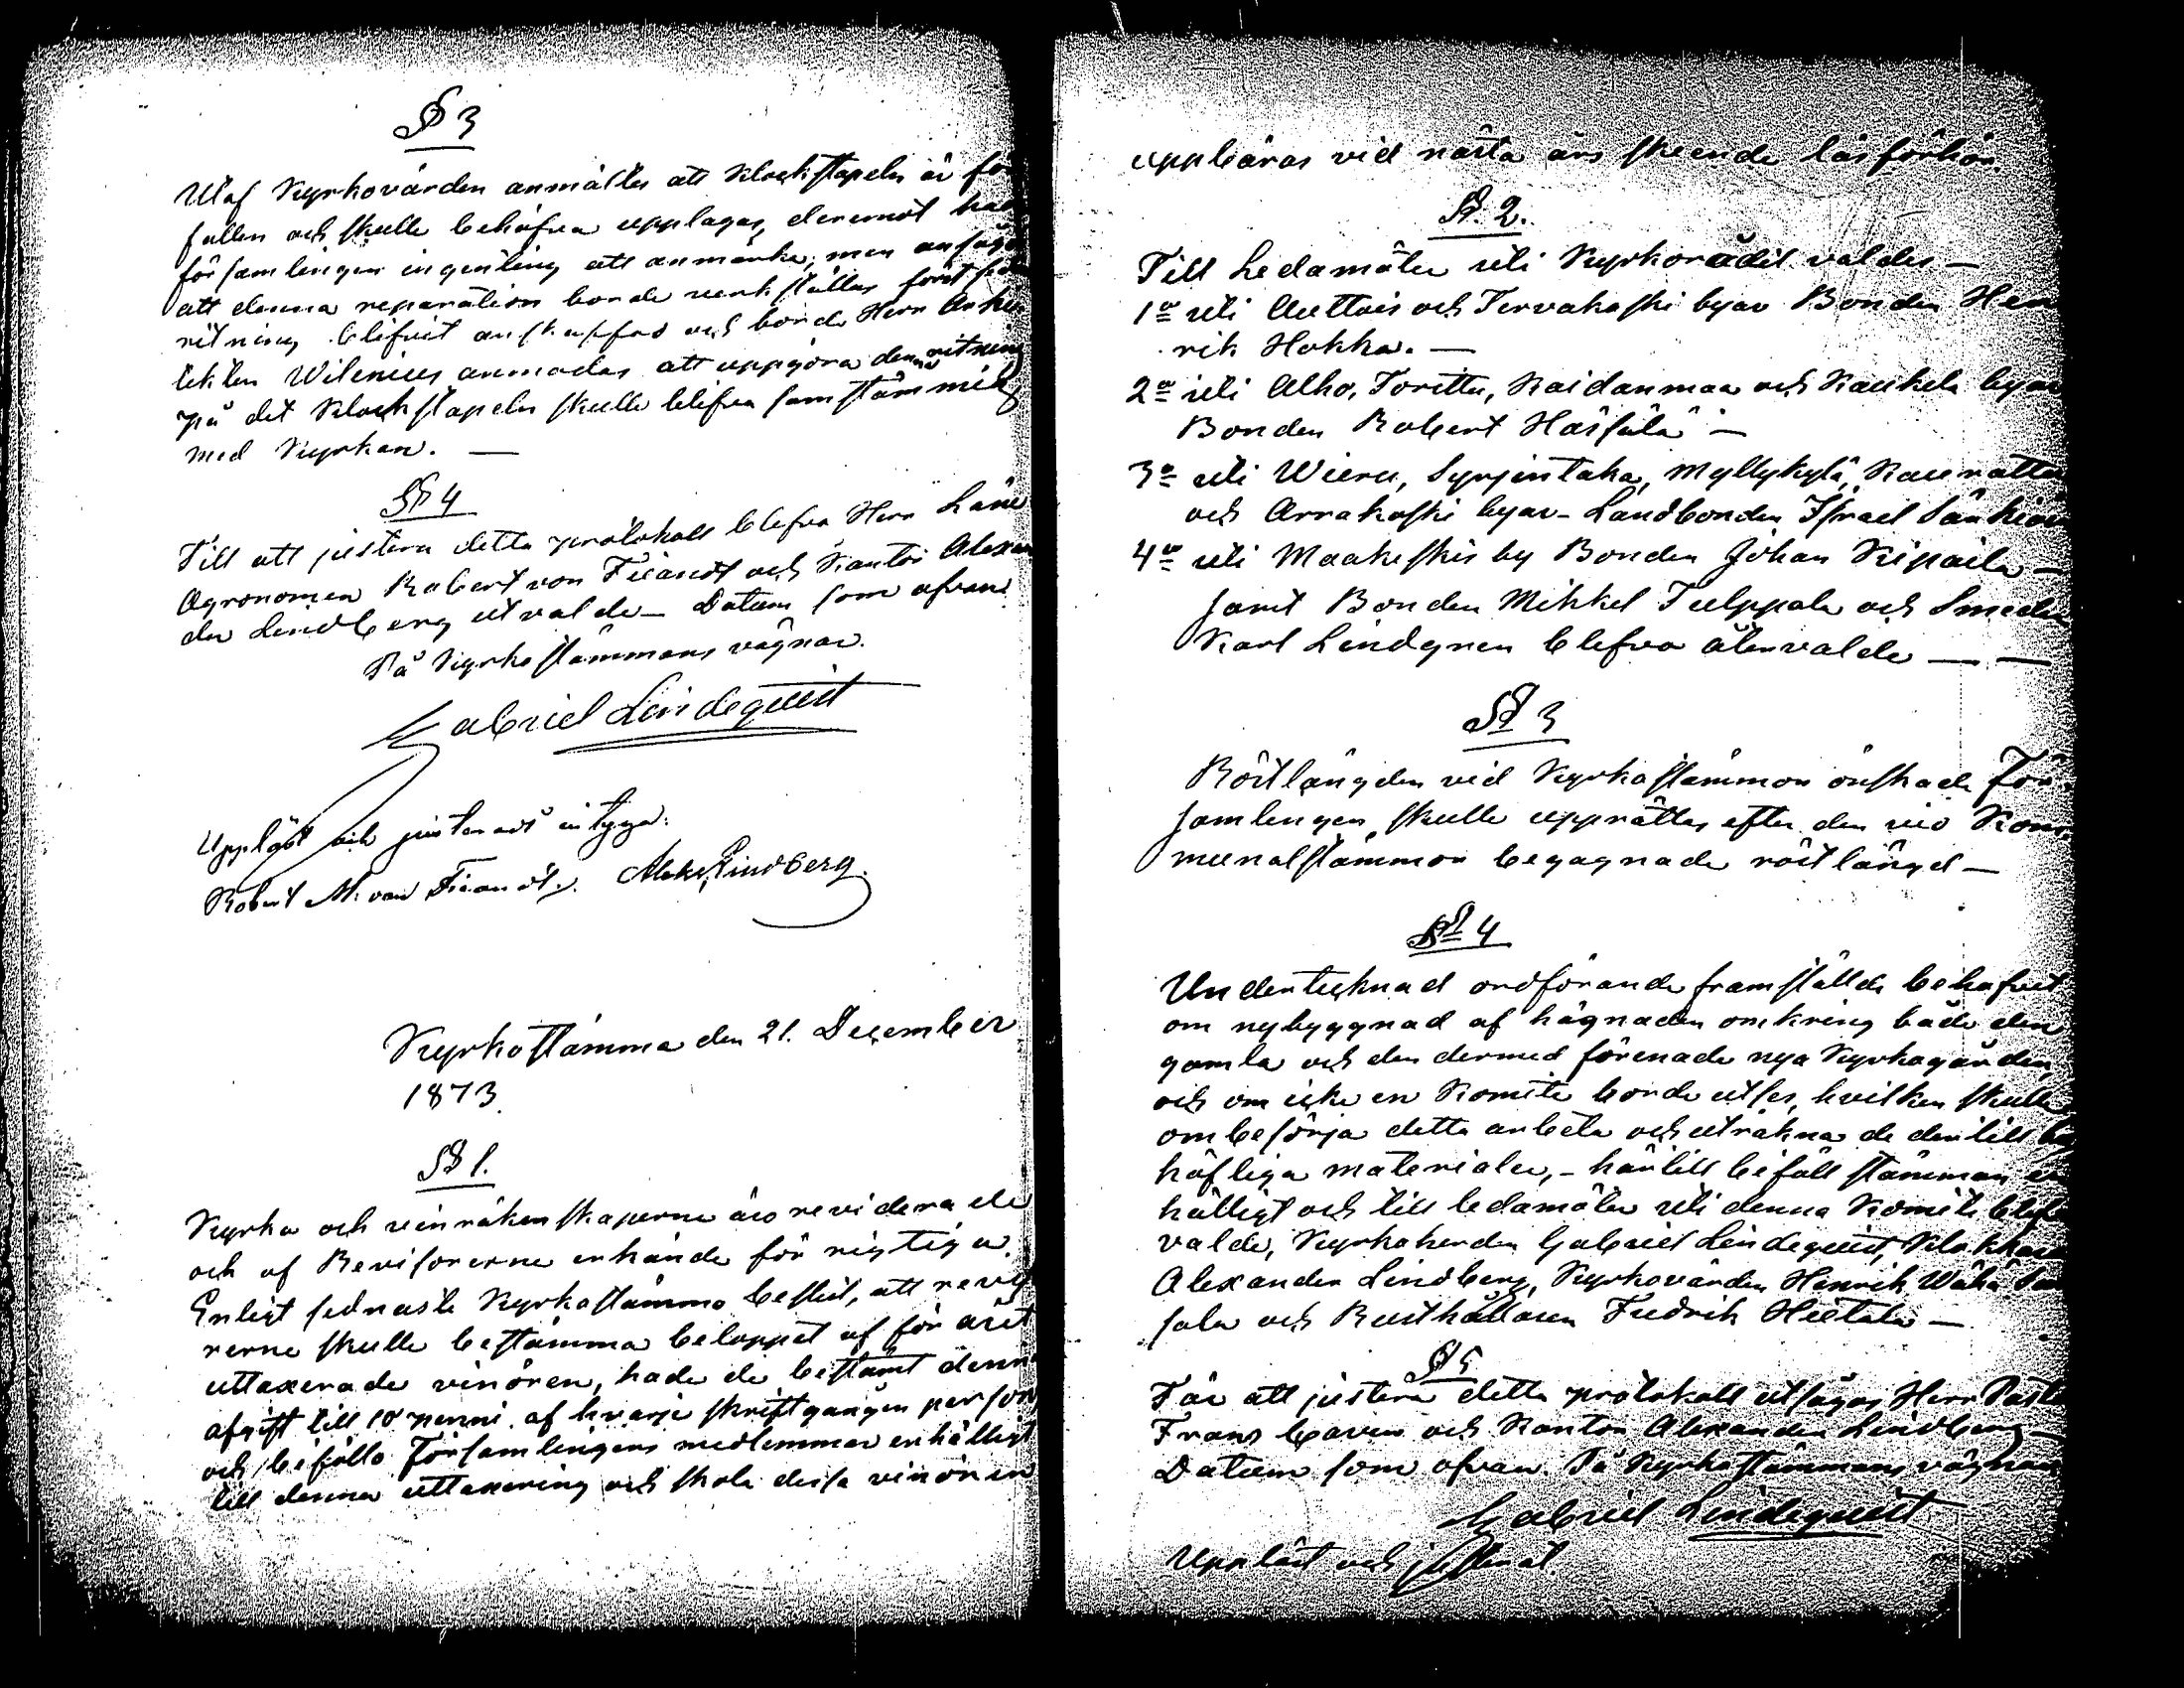 § 3
Utaf Kyrkovärden anmältes att Klockstapeln är för
fallen och skulle behöfva upplagas, deremot hade
församlingen ingenting att anmärka, men ansågo
att denna reparation borde verkställas först sedan
ritning blifvit anskaffad och borde Herr Arki
tekten Wilenius anmodas att uppgöra denna ritning
på det Klockstapeln skulle blifva samstämmig
med Kyrkan. —
§ 4
Till att justera detta protokoll blefvo Herr Läne
Agronomen Robert von Fieandt och Kantor Alexan
der Lindberg utvalde — Datum som ofvan
På Kyrkostämmans vägnar.
Gabriel Lindequist
Uppläst och justeradt intyga:
Robert M. von Fieandt. Aleks. Lindberg.
Kyrkostämma den 21. December
1873.
§ 1.
Kyrko och vinräkenskaperne äro reviderade
och af Revisorerne erkände för rigtiga.
Enligt sednaste Kyrkostämmo beslut, att reviso
rerne skulle bestämma beloppet af för året
uttaxerade vinören, hade de bestämt denna
afgift till 10 penni af hvarje skriftgången person
och biföllo Församlingens medlemmar enhälligt
till denna uttaxering och skola dessa vinören
uppbäras vid nästa års skeende läsförhör.
§. 2.
Till Ledamöter uti Kyrkorådet valdes —
1o uti Auttois och Tervakoski byar Bonden Hen
rik Hokka. —
2o uti Alho, Torittu, Kaidanmaa och Kaukela byar
Bonden Robert Hässälä —
3o uti Wieru, Syrjintaka, Myllykylä, Kaurratta
och Arrakoski byar — Landbonden Israel
4o uti Maakeskis by Bonden Johan
samt Bonden Mikkel Tulppala och Smeden
Karl Lindgren blefvo återvalde — —
§ 3
Röstlängden vid Kyrkostämmon önskade För
samlingen skulle upprättas efter den vid Kom
munalstämmon begagnade röstlängd —
§ 4
Undertecknad ordförande framställde behofvet
om nybyggnad af hägnaden omkring både den
gamla och den dermed förenade nya Kyrkogården,
och om icke en Komite borde utses, hvilken skulle
ombesörja detta arbete och uträkna de dertill be
höfliga materialer, — härtill biföll stämman en
hälligt och till ledamöter uti denna Komite blefvo
valde, Kyrkoherden Gabriel Lindequist, Klockaren
Alexander Lindberg, Kyrkovärden Henrik Wähä
sala och Rusthållaren Fredrik Hietala —
§ 5
För att justera detta protokoll utsågos Herr Pastor
Frans och Kantor Alexander Lindberg —
Datum som ofvan. På Kyrkostämmans vägnar
Gabriel Lindequist
Uppläst och justerat